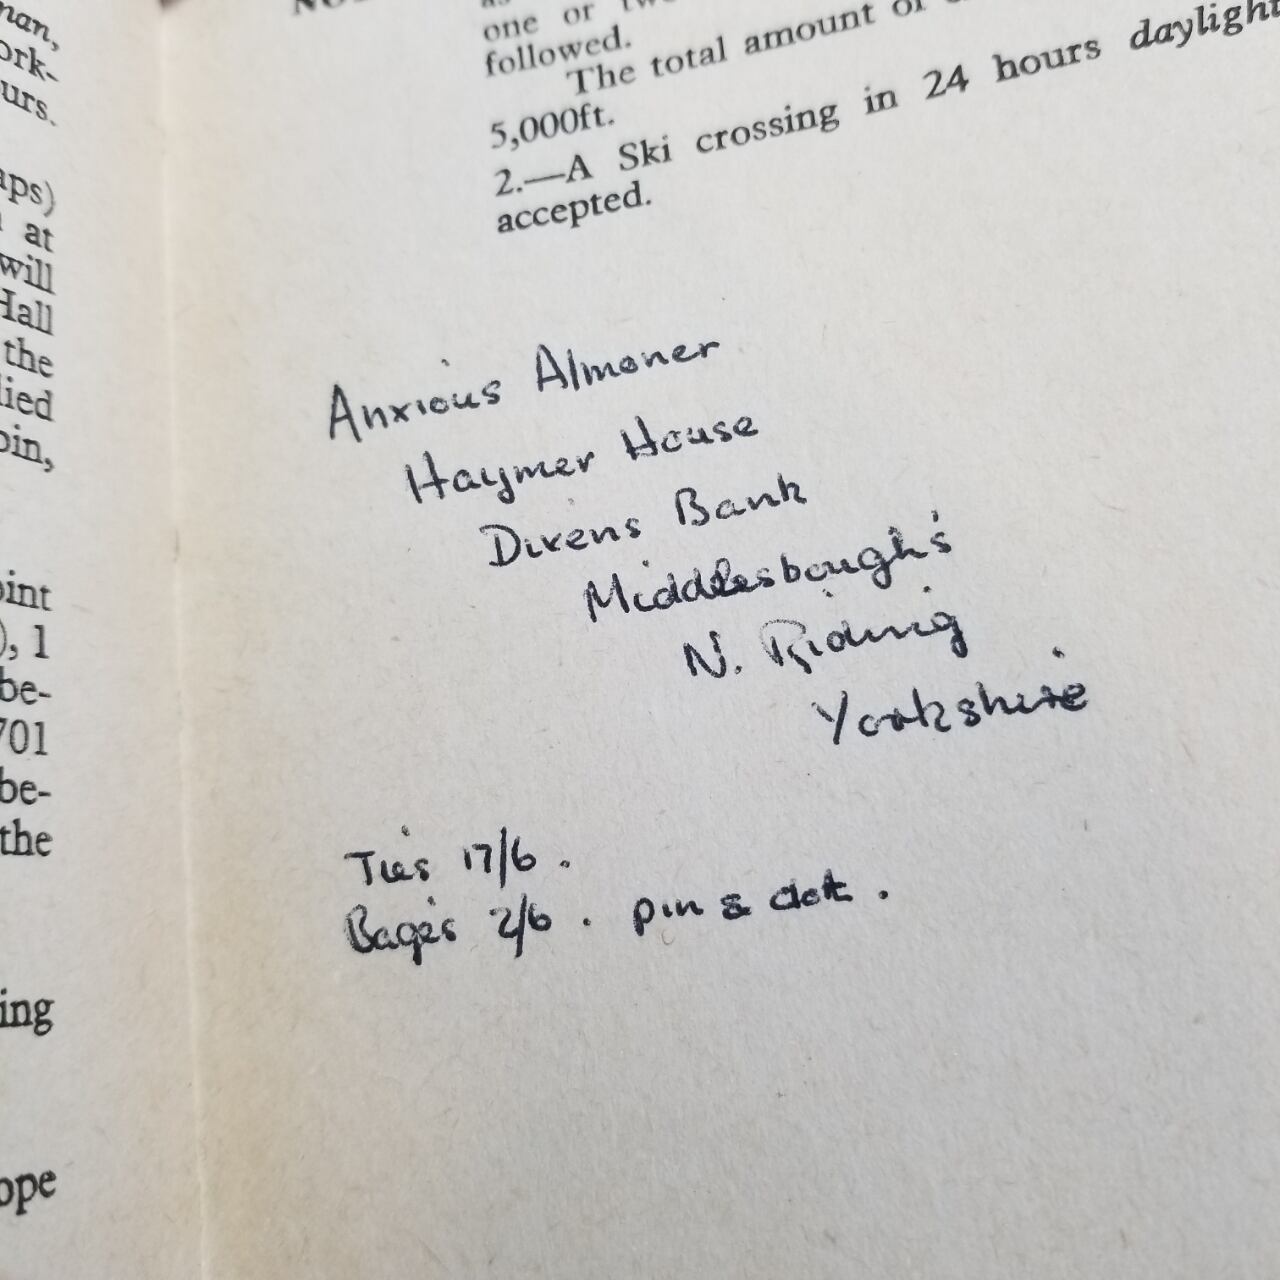 man,
ork-
urs.
aps)
at
will
Hall
the
lied
oin,
oint
), 1
be-
701
be-
the
ing
ope
one or
followed.
The total amount of
5,000ft.
2.—A Ski crossing in 24 hours daylight
accepted.
Anxious Almoner
Haymer House
Dixens Bank
Middlesbough's
N. Riding
Yorkshire
Ties 17/6.
Bages 2/6. pin & clott.